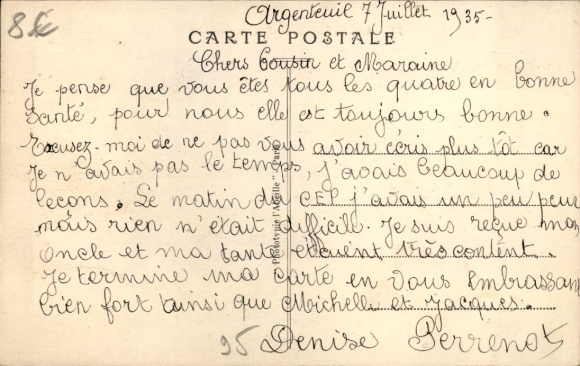 8€
Argenteuil 7 Juillet 1935-
CARTE POSTALE
Chers Cousin et Maraine
Je pense que vous êtes tous les quatre en bonne
santé, pour nous elle est toujours bonne.
Excusez-moi de ne pas vous avoir écris plus tôt car
Je n'avais pas le temps, j'avais beaucoup de
leçons. Le matin du C.E.P. j'avais un peu peur
mais rien n'était difficile. Je suis reçue mon
Oncle et ma tante étaient très content.
Je termine ma carte en vous embrassant
bien fort ainsi que Michelle et Jacques.
95 Denise Perrenot
Phototypie l'Abeille